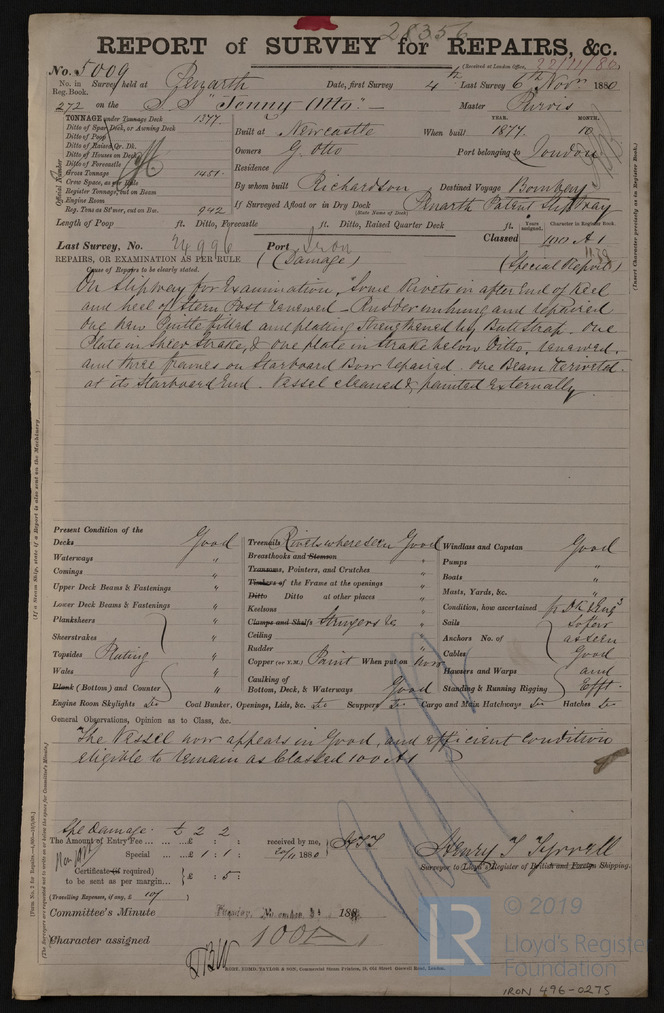 28356
REPORT of SURVEY for REPAIRS, &c.
(Received at London Office,
No. 5009
No. in Reg. Book. Survey held at Penarth Date, first Survey 4th Last Survey 6th Novr 1880
272 on the S S "Jenny Otto" Master Purvis
TONNAGE under Tonnage Deck 1377
Ditto of Spar Deck, or Awning Deck
Ditto of Poop
Ditto of Raised Qr. Dk.
Ditto of Houses on Deck
Ditto of Forecastle
Gross Tonnage 1451
Crew Space, as per Rule
Register Tonnage, cut on Beam
Engine Room
Reg. Tons as St'mer, cut on Bm. 942
Official Number
YEAR. MONTH.
Built at Newcastle When built 1877. 10
Owners G. Otto Port belonging to London
Residence
By whom built Richardson Destined Voyage Bombay
If Surveyed Afloat or in Dry Dock Penarth Patent Slipway
(State Name of Dock)
Length of Poop ft. Ditto, Forecastle ft. Ditto, Raised Quarter Deck ft.
Years assigned. Character in Register Book.
Last Survey, No. 24996 Port Iron Classed 100 A 1
REPAIRS, OR EXAMINATION AS PER RULE (Damage) (Special Report)
Cause of Repairs to be clearly stated.
(Insert Character precisely as in Register Book.)
On Slipway for Examination. Some Rivets in after End of Keel
and heel of Stern Post renewed – Rudder unhung and repaired
One new Pintle fitted and plating strengthened by Butt Strap. One
Plate in Sheer Strake, & one plate in Strake below Ditto, renewed.
and three frames on Starboard Bow repaired. One Beam reriveted
at its Starboard End. Vessel cleaned & painted Externally
(If a Steam Ship, state if a Report is also sent on the Machinery.
Present Condition of the
Decks Good
Waterways "
Comings "
Upper Deck Beams & Fastenings "
Lower Deck Beams & Fastenings "
Planksheers "
Sheerstrakes "
Topsides Plating "
Wales "
Plank (Bottom) and Counter "
Engine Room Skylights Do Coal Bunker, Openings, Lids, &c. Do Scuppers Do Cargo and Main Hatchways Do Hatches Do
Treenails Rivets where seen Good
Breasthooks and Stemson "
Transoms, Pointers, and Crutches "
Timbers of the Frame at the openings "
Ditto Ditto at other places "
Keelsons "
Clamps and Shelfs Stringers &c "
Ceiling "
Rudder "
Copper (or Y.M.) Paint When put on now
Caulking of
Bottom, Deck, & Waterways Good
Windlass and Capstan Good
Pumps "
Boats "
Masts, Yards, &c. "
Condition, how ascertained
Sails So far
Anchors No. of as seen
Cables Good
Hawsers and Warps and
Standing & Running Rigging Efft.
General Observations, Opinion as to Class, &c.
The Vessel now appears in Good, and efficient condition
eligible to remain as Classed 100 A1
Spe Damage £ 2 2
The Amount of Entry Fee ... £ : :
Special ... £ 1 : 1 :
received by me,
20/11 1880
Certificate (if required) to be sent as per margin... £ : 5 :
(Travelling Expenses, if any, £ 10/)
Henry T Tyrrell
Surveyor to Lloyd's Register of British and Foreign Shipping.
Committee's Minute 188
Character assigned 100A1
(The Surveyors are requested not to write on or below the space for Committee's Minute.)
ROBT. HORN, TAYLOR & SON, Commercial Steam Printers, 19, Old Street Goswell Road, London.
LR
© 2019
Lloyd's Register
Foundation
IRON 496-0275